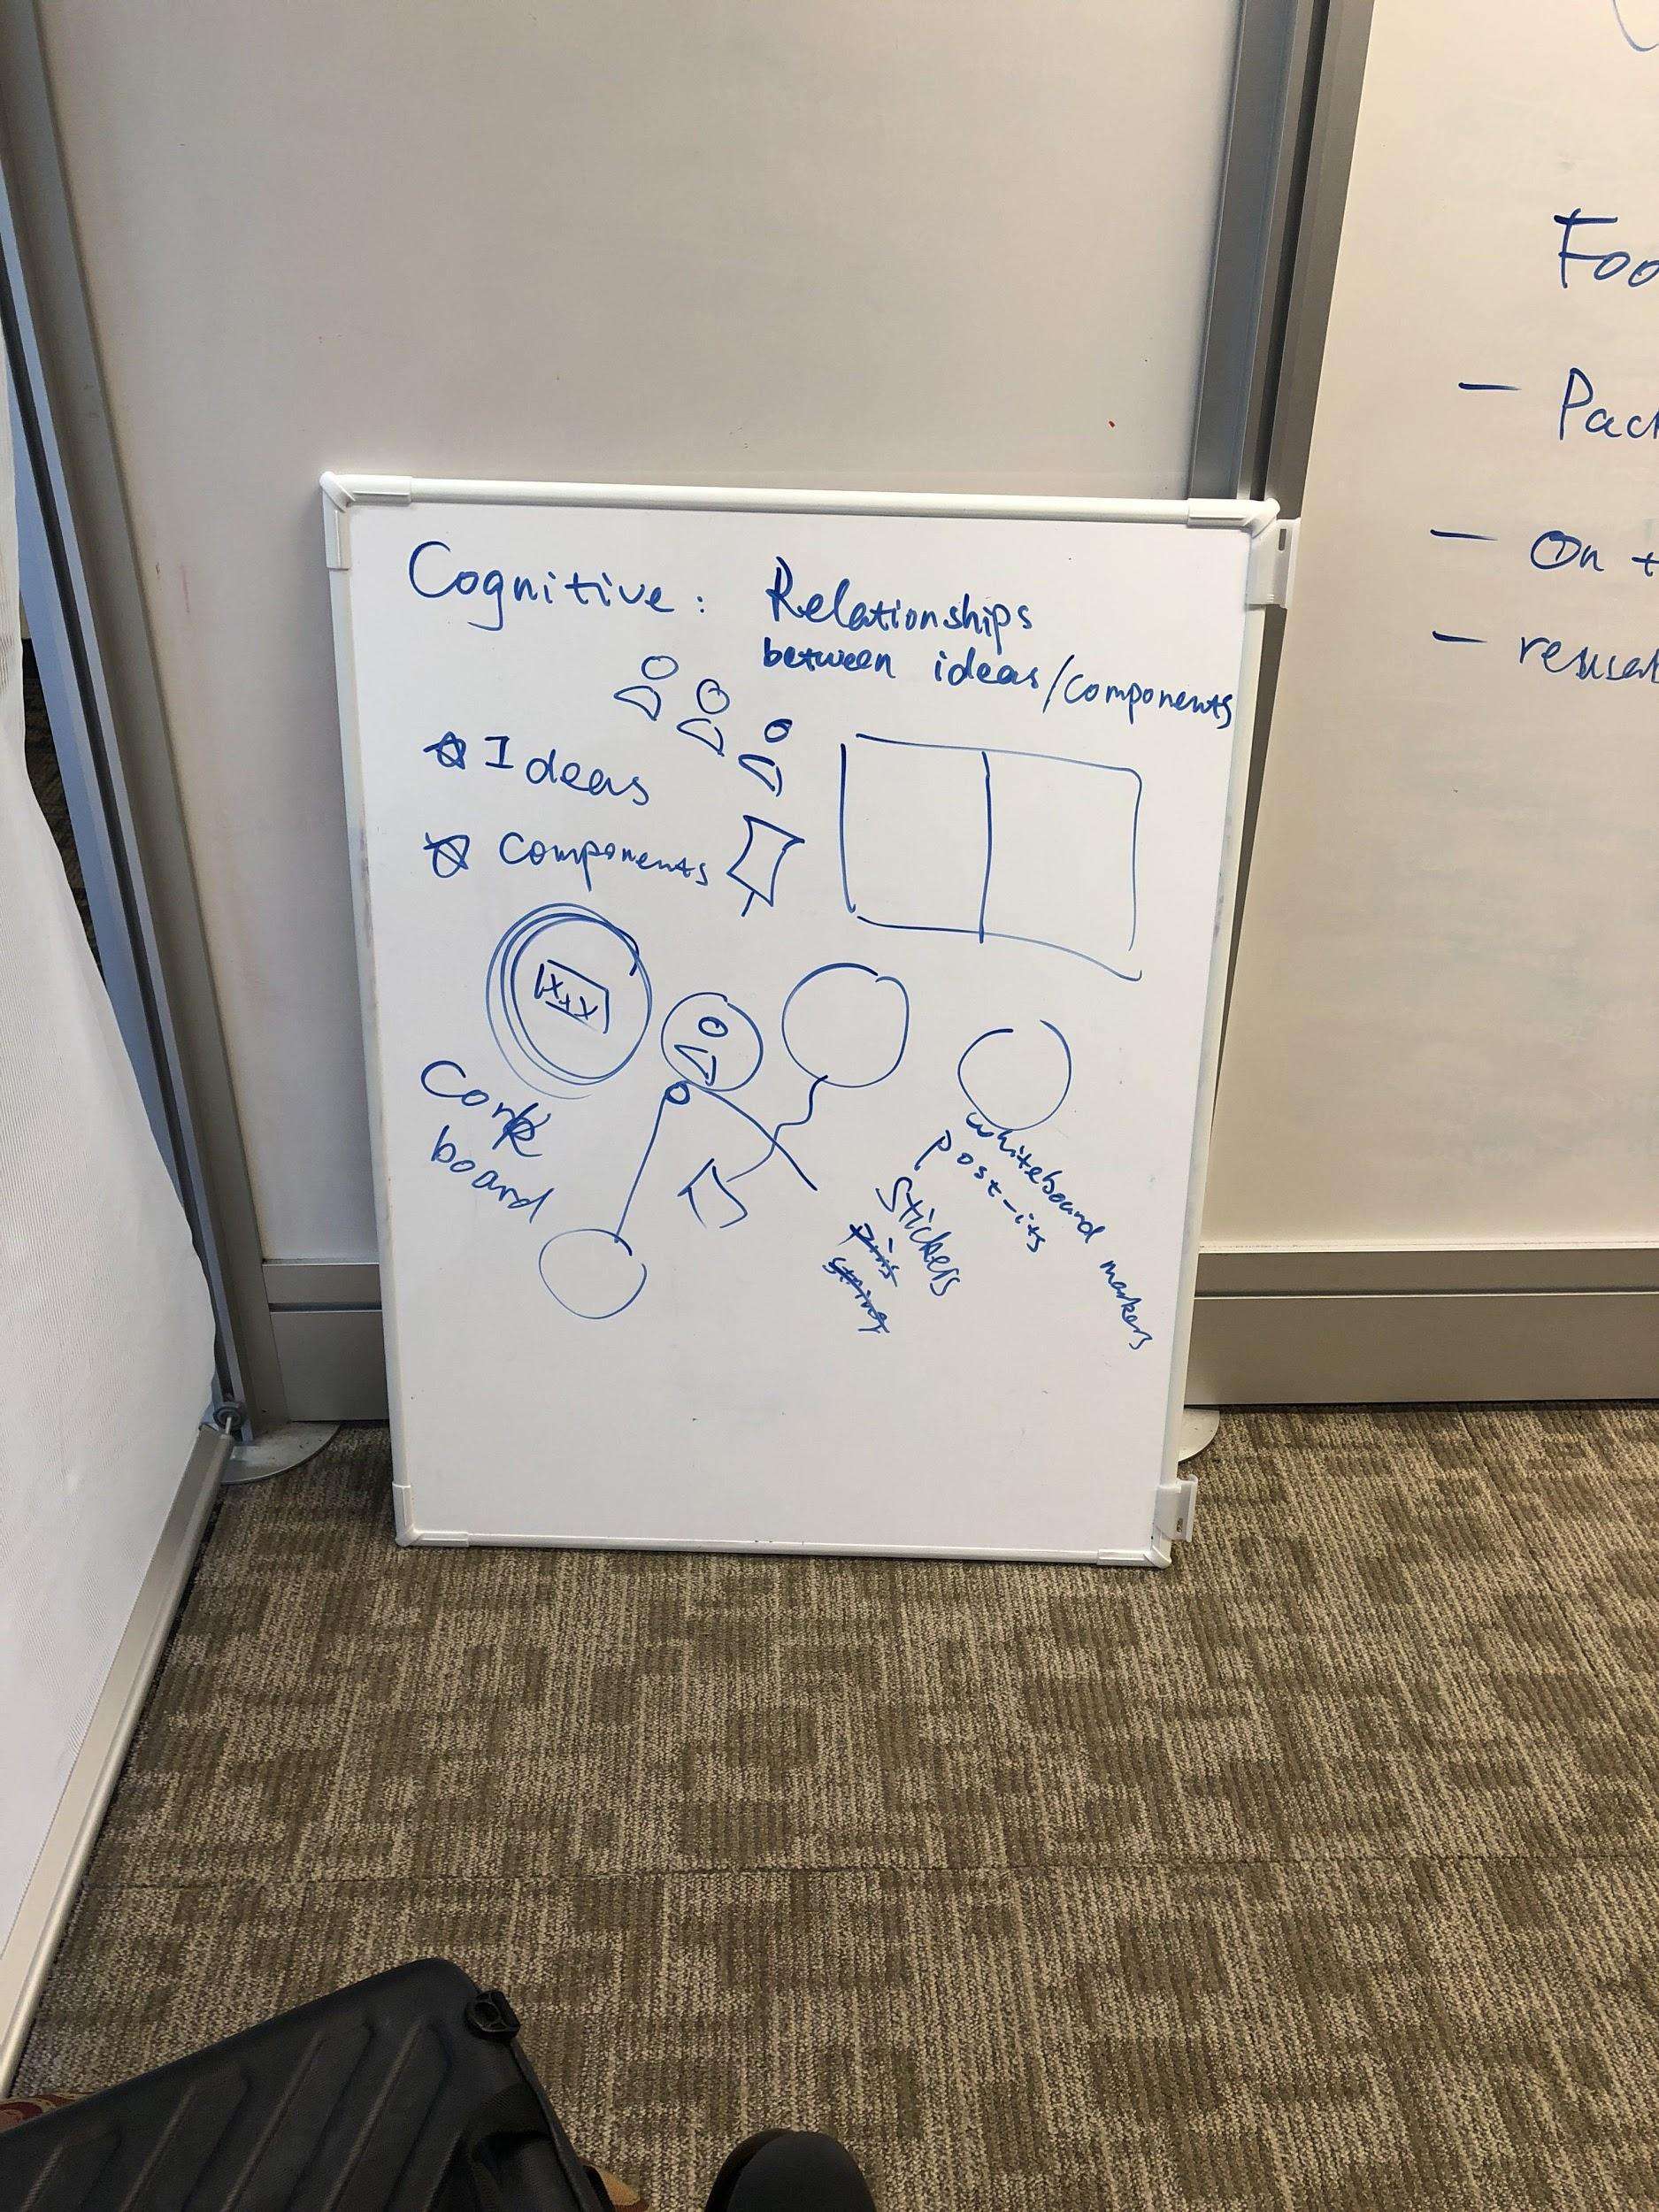 Cognitive: Relationships
between ideas/components
Ideas
components
Cork
board
whiteboard markers
post-its
Stickers
pins
string
Foo
- Pack
- On t
- reusab